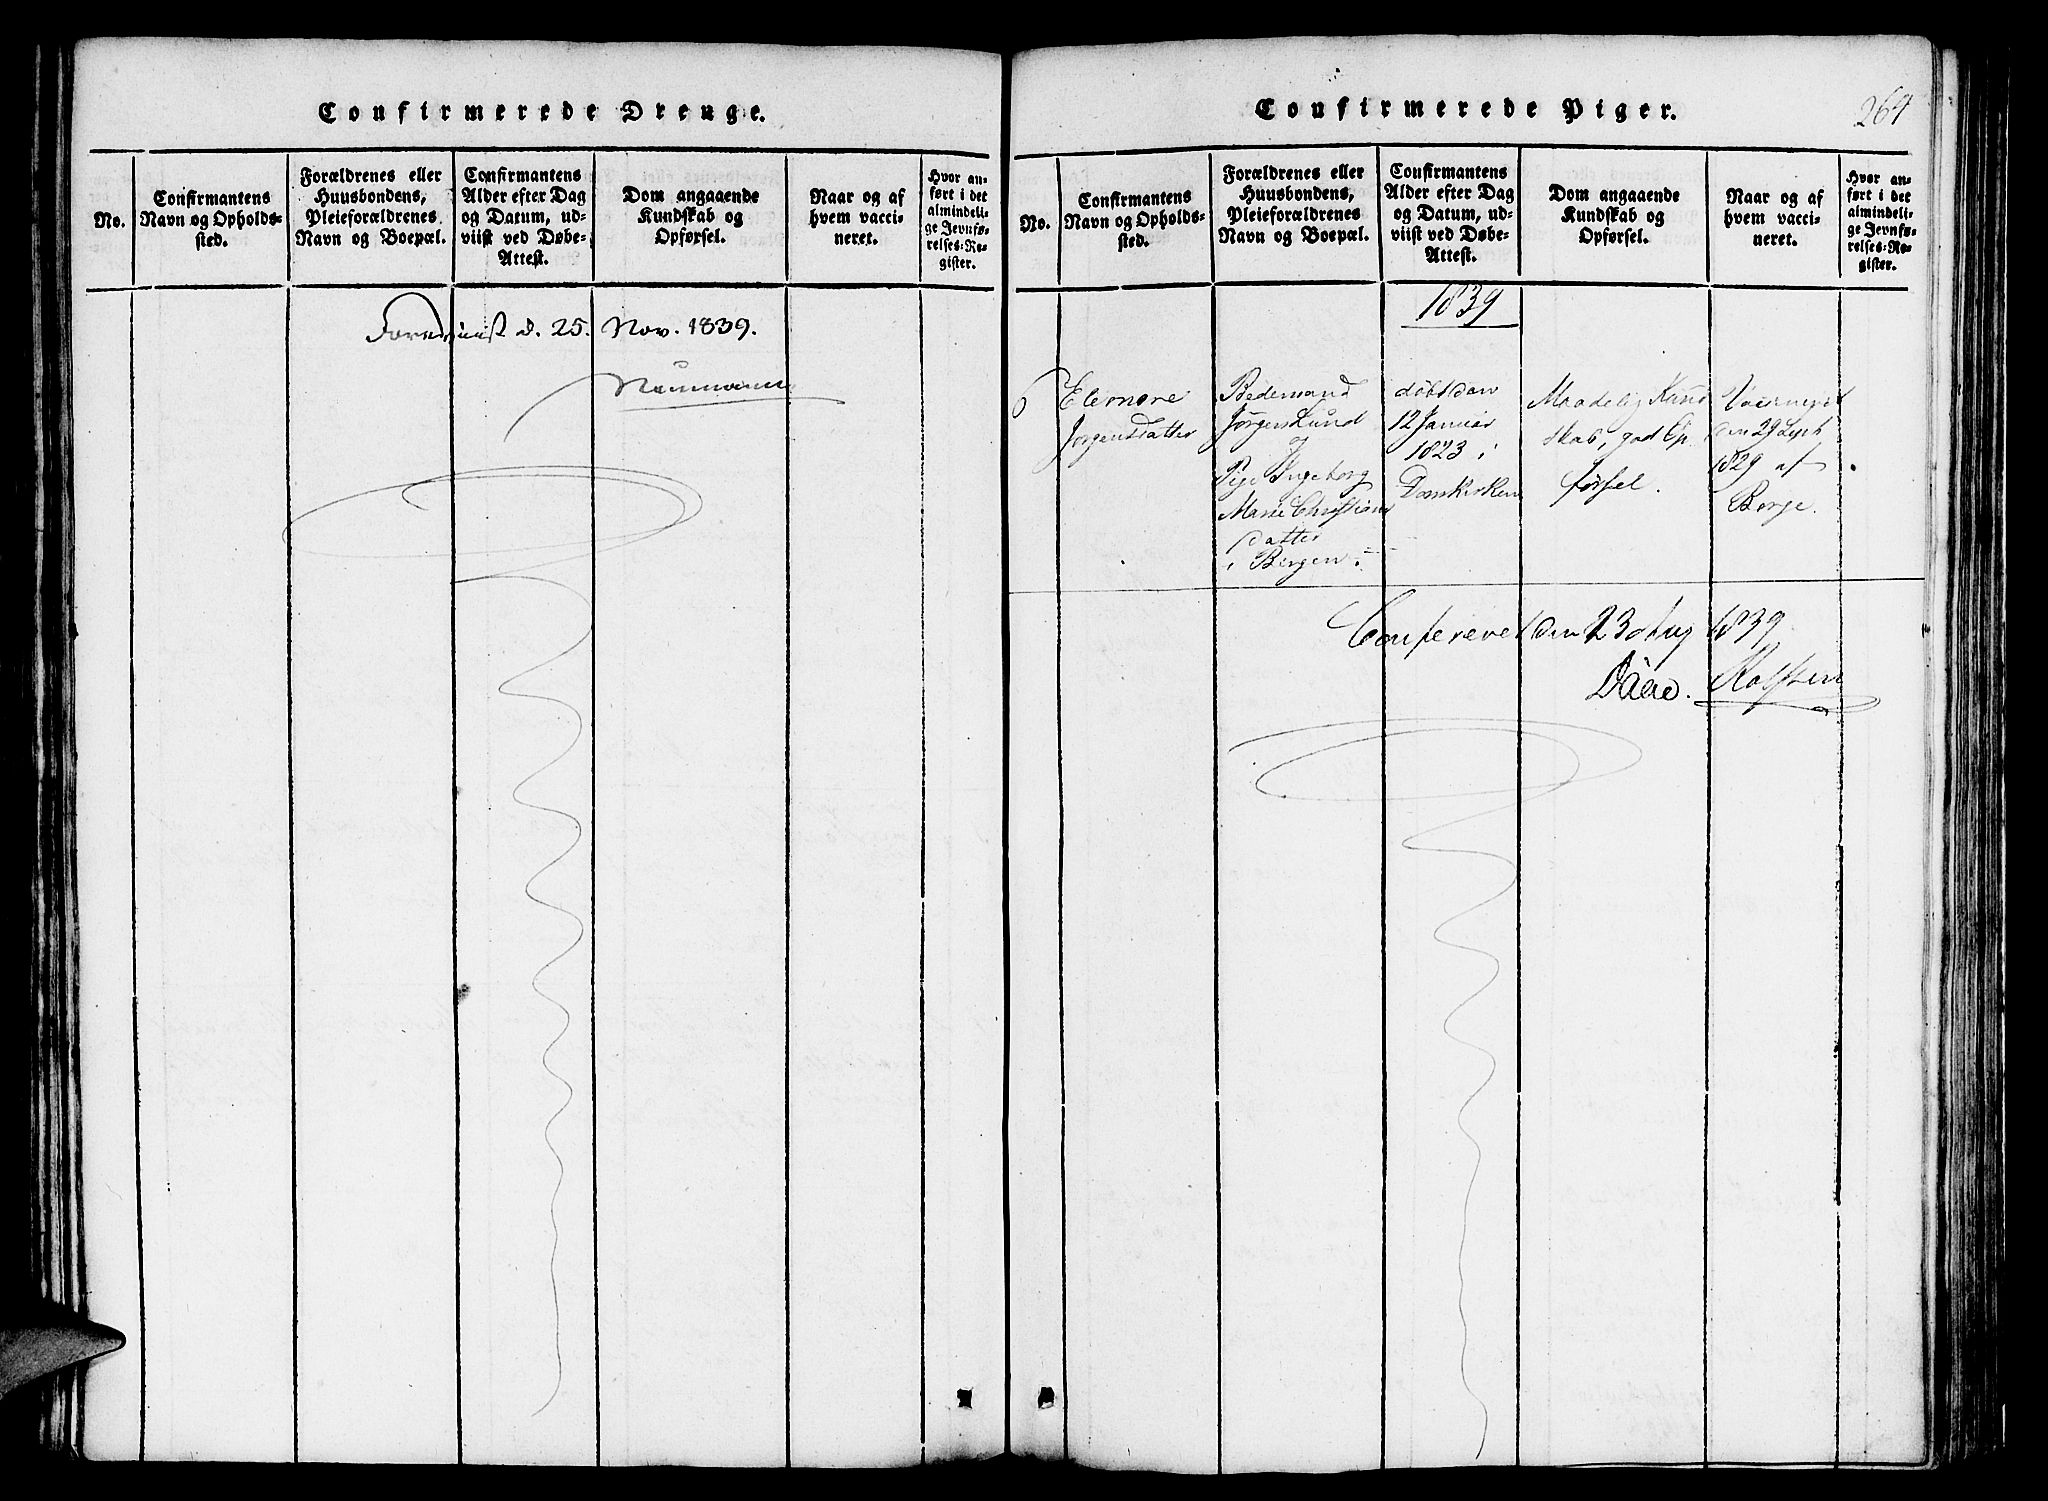 Confirmerede Drenge.
No.
Confirmantens
Navn og Opholds-
sted.
Forældrenes eller
Huusbondens,
Pleieforældrenes
Navn og Boepæl.
Confirmantens
Alder efter Dag
og Datum, ud-
viist ved Døbe-
Attest.
Dom angaaende
Kundskab og
Opførsel.
Naar og af
hvem vacci-
neret.
Hvor an-
ført i det
almindeli-
ge Jevnfø-
relses-Re-
gister.
Foreviist d. 25. Nov. 1839.
Neumann
Confirmerede Piger.
264
No.
Confirmantens
Navn og Opholds-
sted.
Forældrenes eller
Huusbondens,
Pleieforældrenes
Navn og Boepæl.
Confirmantens
Alder efter Dag
og Datum, ud-
viist ved Døbe-
Attest.
Dom angaaende
Kundskab og
Opførsel.
Naar og af
hvem vacci-
neret.
Hvor an-
ført i det
almindeli-
ge Jevnfø-
relses-Re-
gister.
1839
6
Elenore
Jørgensdatter
Bedemand
Jørgen Lund
og
Pige Ingeborg
Marie Christians
datter
i Bergen
døbt den
12 Januar
1823 i
Domkirken
Maadelig Kund
skab, god Op
førsel.
Vaccineret
den 29 Sept
1829 af
Børge.
Confereret den 23 Aug 1839
Daae.